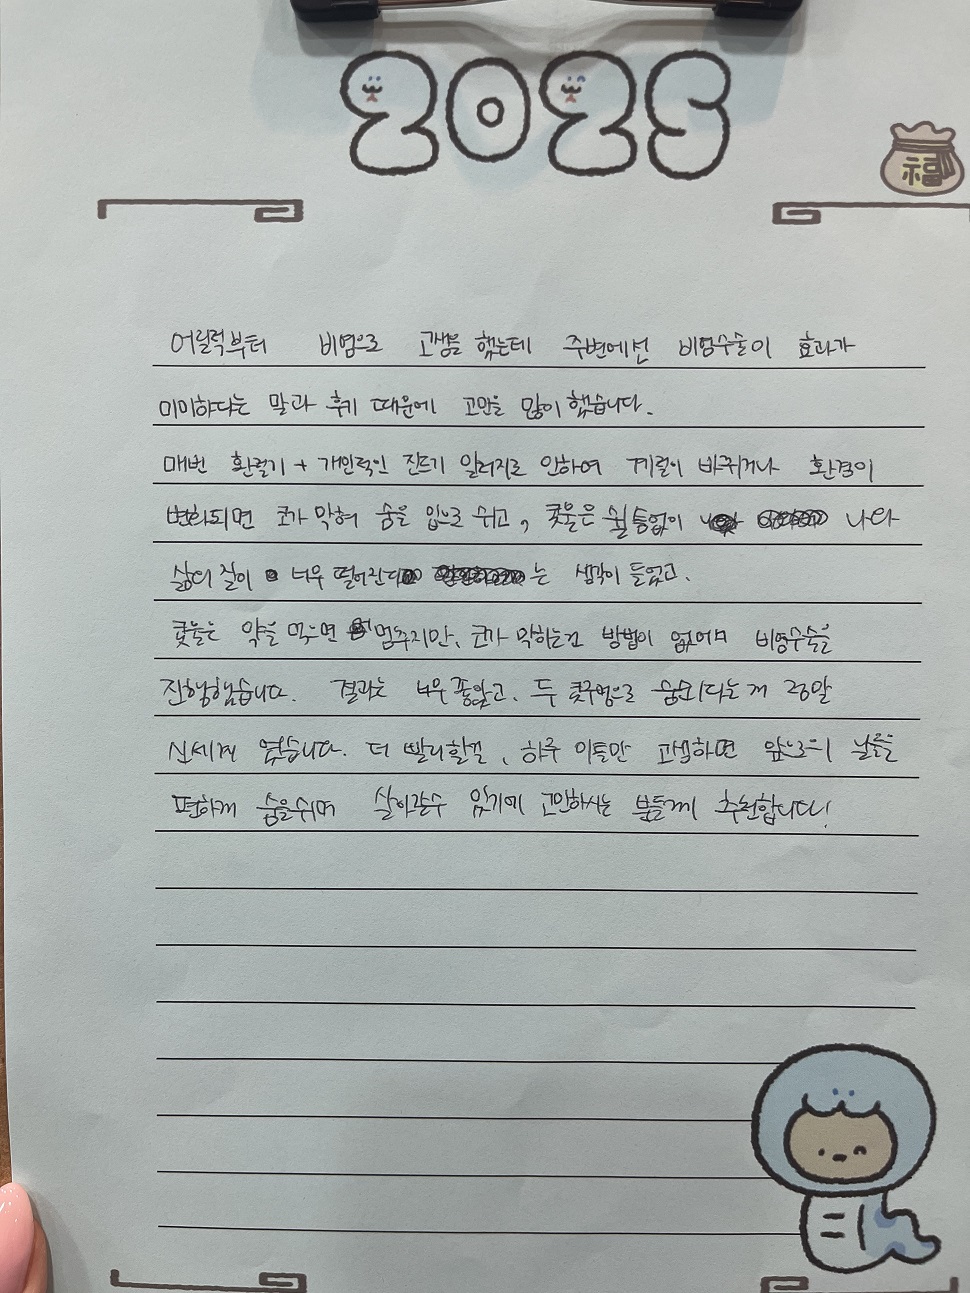 2025
福
어릴적부터 비염으로 고생을 했는데 주변에선 비염수술이 효과가
미미하다는 말과 후기 때문에 고민을 많이 했습니다.
매번 환절기 + 개인적인 진드기 알러지로 인하여 계절이 바뀌거나 환경이
변화되면 코가 막혀 숨을 입으로 쉬고, 콧물은 쉴틈없이 나와
삶의 질이 너무 떨어진다는 생각이 들었고.
콧물은 약을 먹으면 멈추지만, 코가 막히는건 방법이 없어서 비염수술을
진행했습니다. 결과는 너무 좋았고. 두 콧구멍으로 숨쉬다는게 정말
신세계 였습니다. 더 빨리할걸, 하루 이틀만 고생하면 앞으로의 날들을
편하게 숨을쉬며 살아갈수 있기에 고민하시는 분들께 추천합니다!